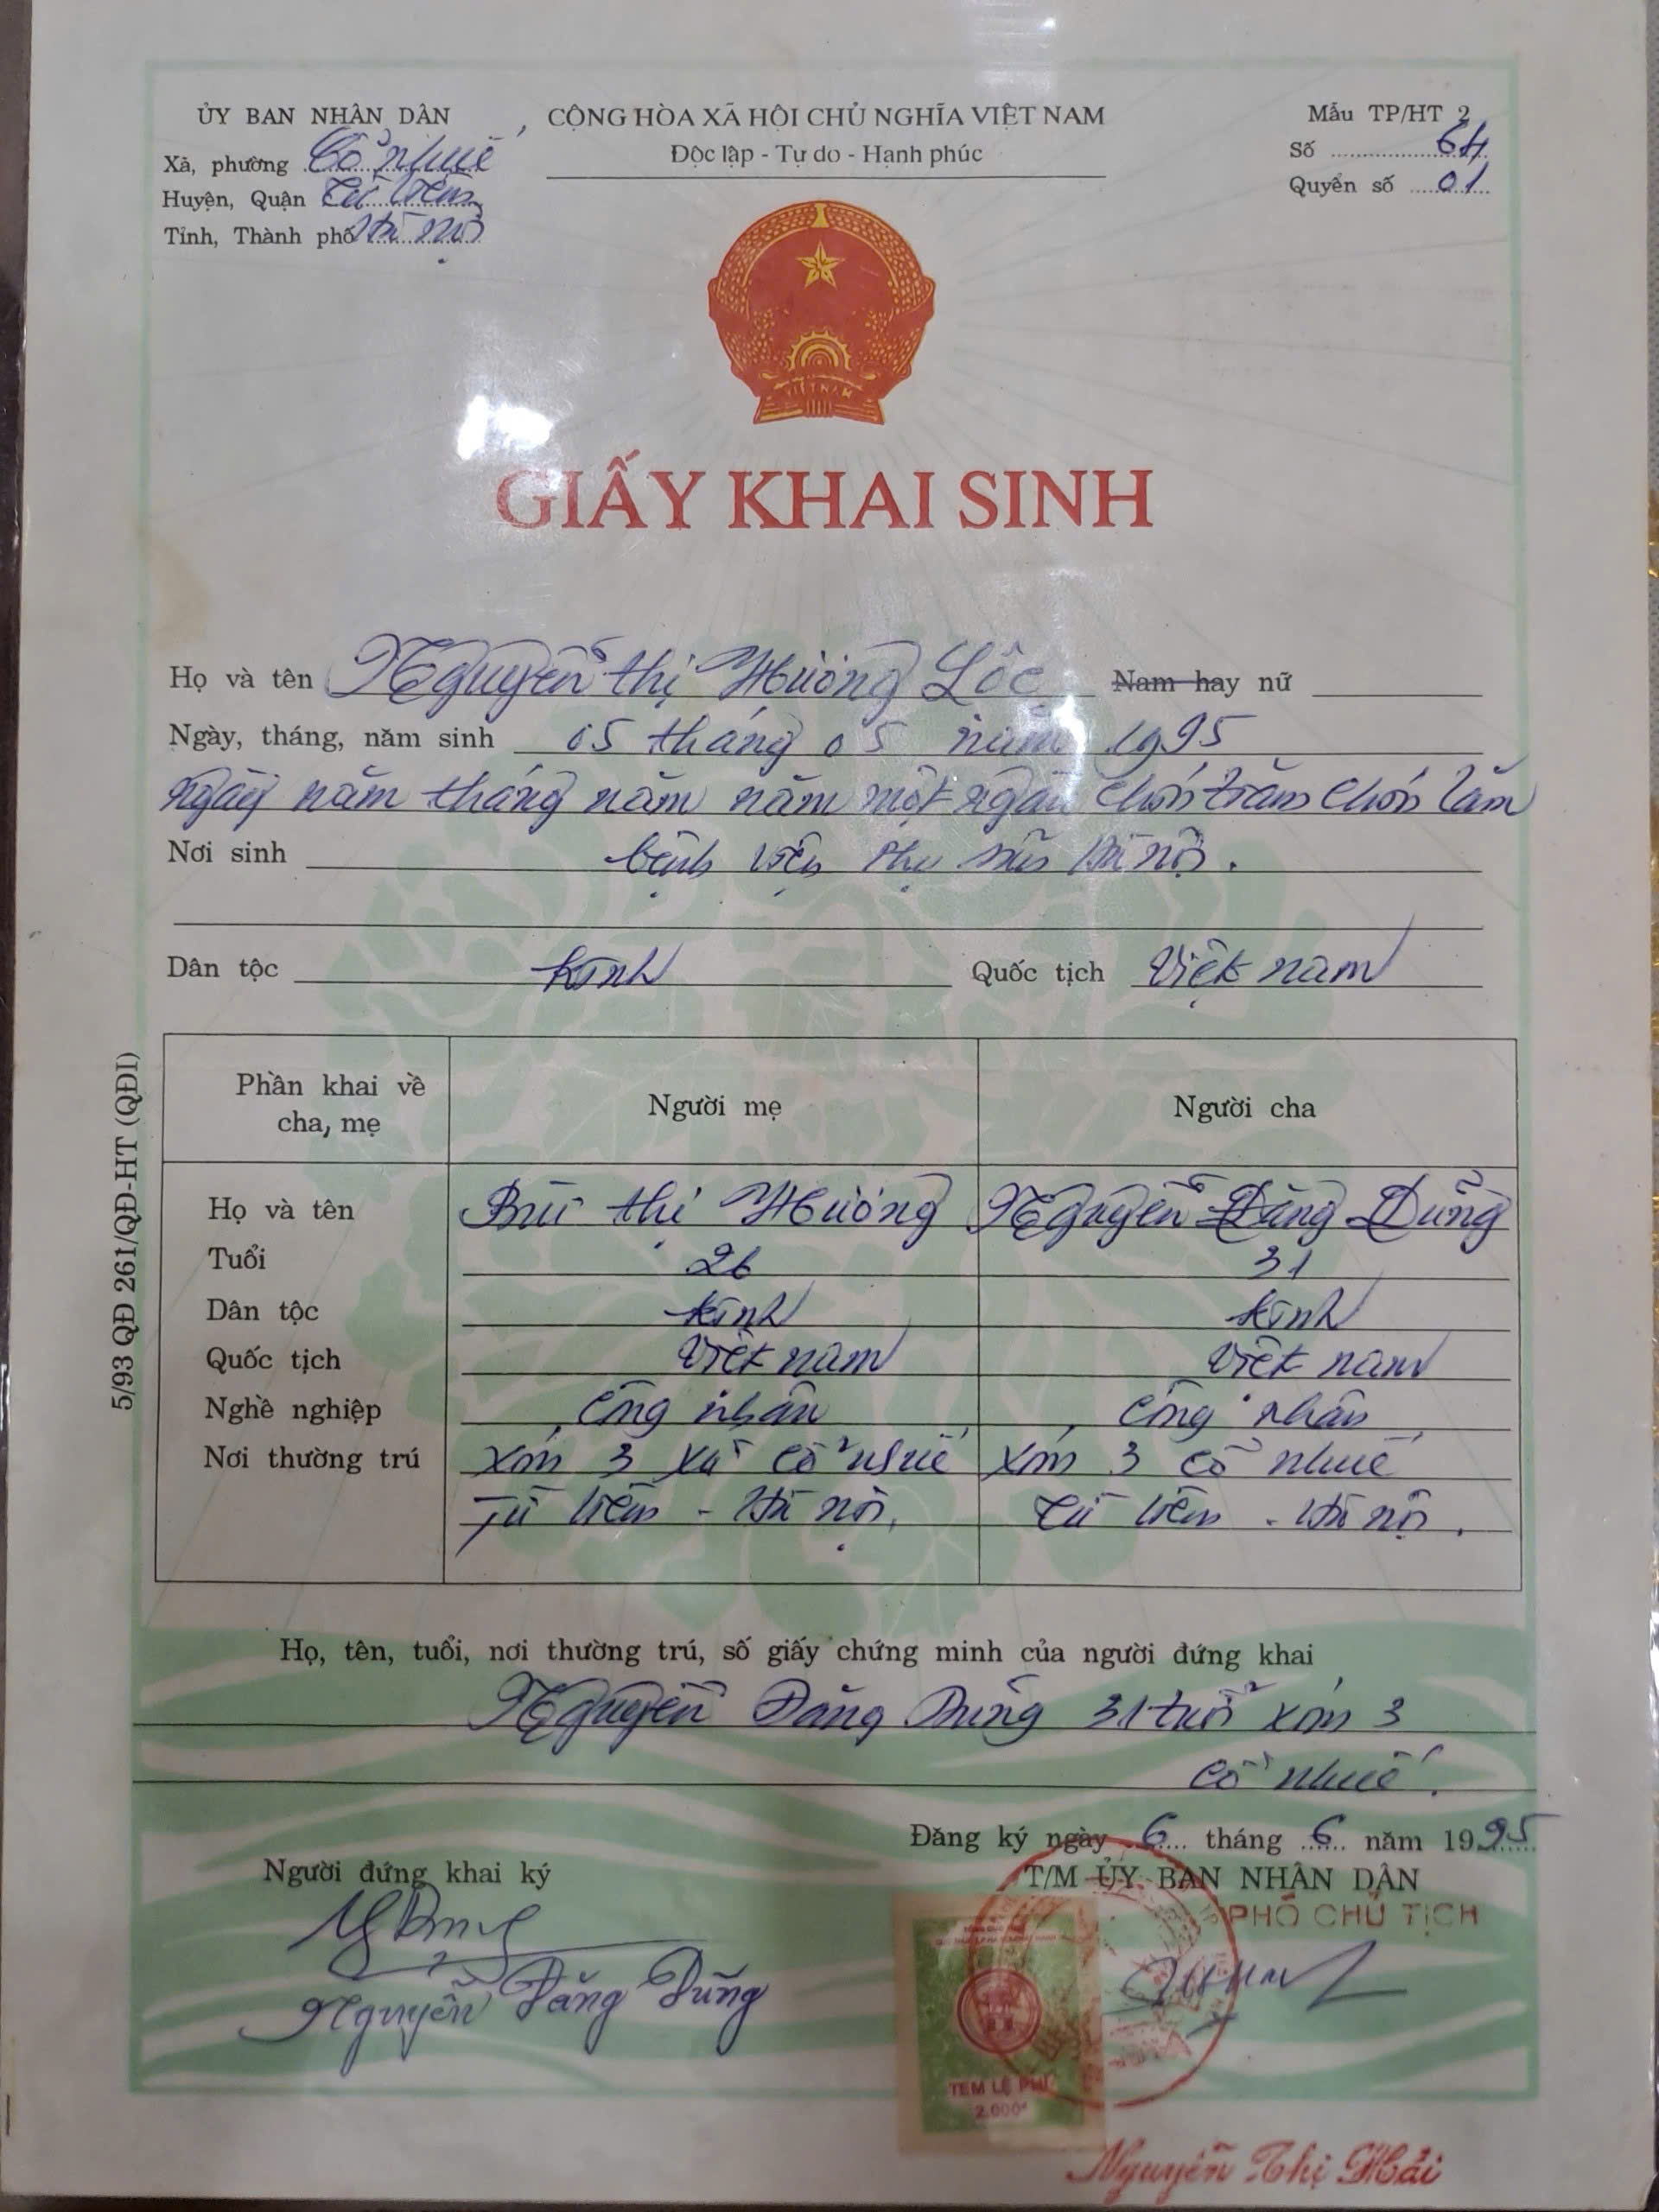 ỦY BAN NHÂN DÂN
Xã, phường Cổ Nhuế
Huyện, Quận Từ Liêm
Tỉnh, Thành phố Hà Nội
CỘNG HÒA XÃ HỘI CHỦ NGHĨA VIỆT NAM
Độc lập - Tự do - Hạnh phúc
Mẫu TP/HT 2
Số 64
Quyển số 01
GIẤY KHAI SINH
Họ và tên Nguyễn thị Hường Lộc Nam hay nữ
Ngày, tháng, năm sinh 05 tháng 05 năm 1995
ngày năm tháng năm năm một ngàn chín trăm chín lăm
Nơi sinh bệnh viện Phụ sản Hà nội.
Dân tộc kinh Quốc tịch Việt nam
Phần khai về cha, mẹ
Người mẹ
Người cha
Họ và tên Bùi thị Hường Nguyễn Đăng Dũng
Tuổi 26 31
Dân tộc kinh kinh
Quốc tịch Việt nam Việt nam
Nghề nghiệp công nhân công nhân
Nơi thường trú xóm 3 xã cổ nhuế xóm 3 cổ nhuế
Từ liêm - Hà nội. từ liêm - Hà nội.
5/93 QĐ 261/QĐ-HT (QĐI)
Họ, tên, tuổi, nơi thường trú, số giấy chứng minh của người đứng khai
Nguyễn Đăng Dũng 31 tuổi xóm 3
cổ nhuế.
Đăng ký ngày 6 tháng 6 năm 1995
Người đứng khai ký
T/M ỦY BAN NHÂN DÂN
PHÓ CHỦ TỊCH
Nguyễn Đăng Dũng
TEM LỆ PHÍ
2.000đ
Nguyễn Thị Hải